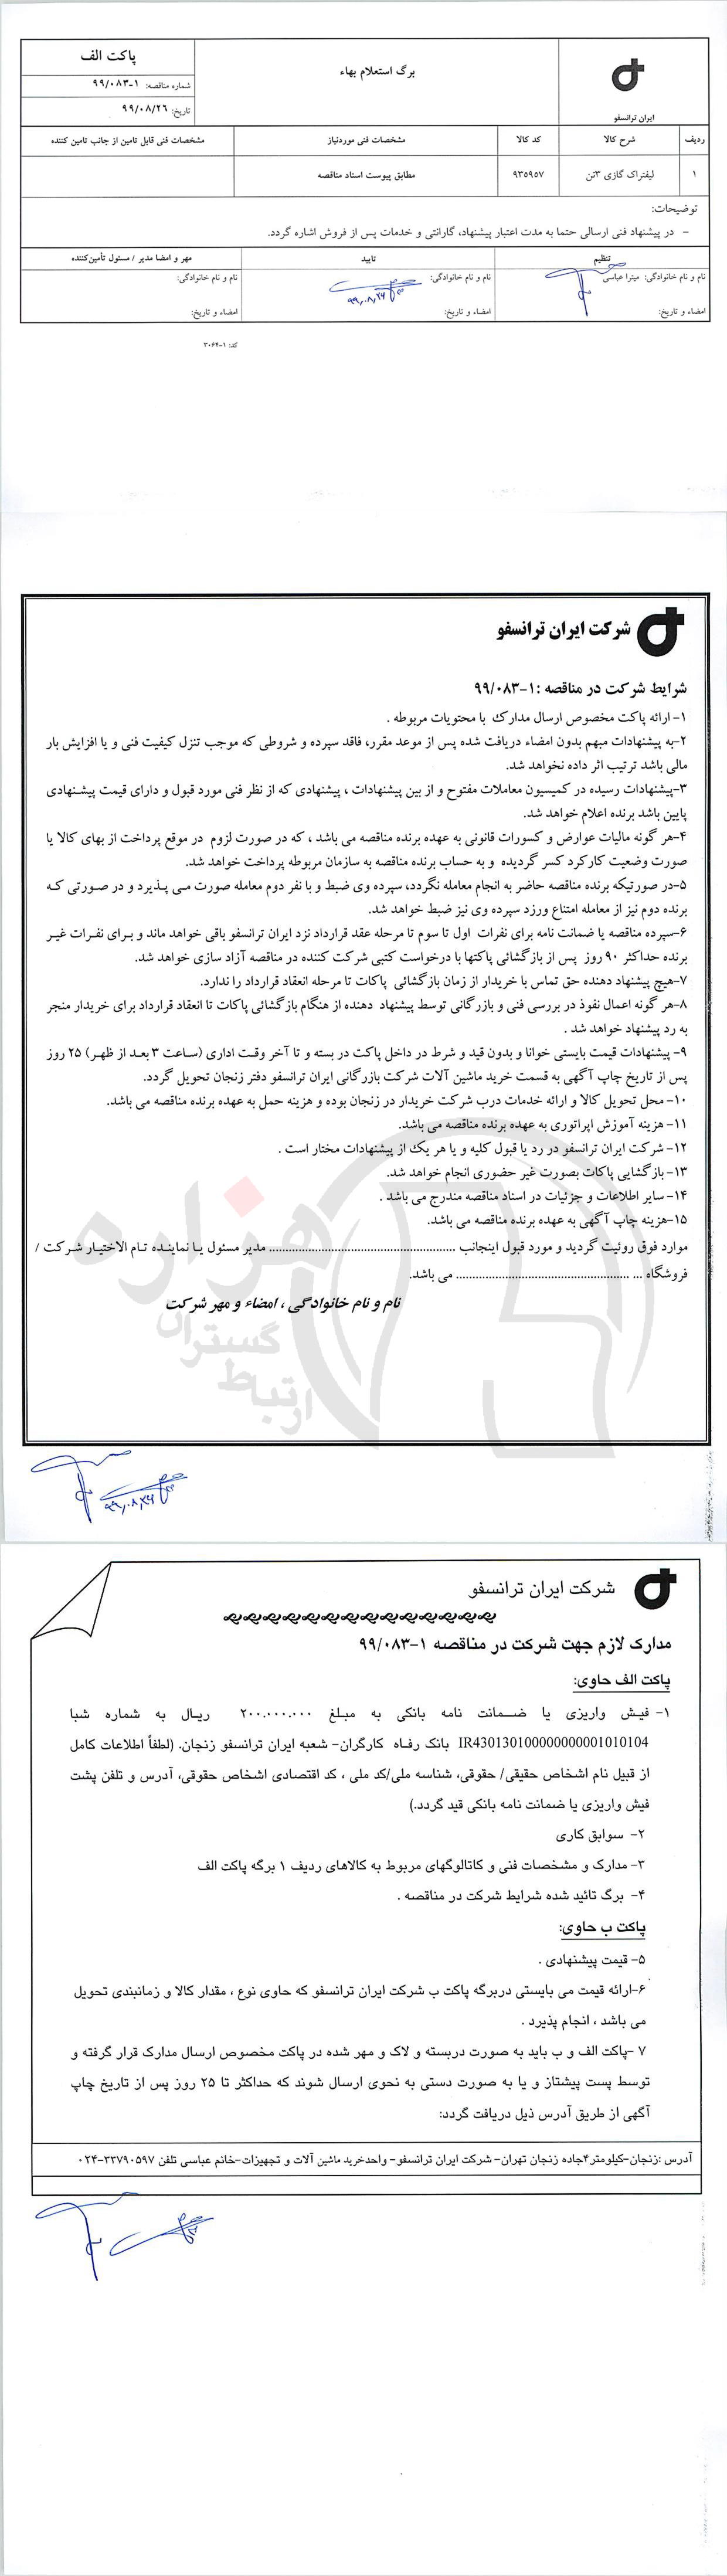 ایران ترانسفو
برگ استعلام بهاء
پاکت الف
شماره مناقصه: ۱-۹۹/۰۸۳
تاریخ: ۹۹/۰۸/۲۶
ردیف
شرح کالا
کد کالا
مشخصات فنی موردنیاز
مشخصات فنی قابل تامین از جانب تامین کننده
۱
لیفتراک گازی ۳تن
۹۳۵۹۵۷
مطابق پیوست اسناد مناقصه
توضیحات:
- در پیشنهاد فنی ارسالی حتما به مدت اعتبار پیشنهاد، گارانتی و خدمات پس از فروش اشاره گردد.
تنظیم
تایید
مهر و امضا مدیر / مسئول تأمین‌کننده
نام و نام خانوادگی: میترا عباسی
نام و نام خانوادگی:
نام و نام خانوادگی:
امضاء و تاریخ:
امضاء و تاریخ:
امضاء و تاریخ:
۹۹,۰۸,۲۶
کد: ۱-۳۰۶۴
شرکت ایران ترانسفو
شرایط شرکت در مناقصه :۱-۹۹/۰۸۳
۱- ارائه پاکت مخصوص ارسال مدارک با محتویات مربوطه .
۲-به پیشنهادات مبهم بدون امضاء دریافت شده پس از موعد مقرر، فاقد سپرده و شروطی که موجب تنزل کیفیت فنی و یا افزایش بار
مالی باشد ترتیب اثر داده نخواهد شد.
۳-پیشنهادات رسیده در کمیسیون معاملات مفتوح و از بین پیشنهادات ، پیشنهادی که از نظر فنی مورد قبول و دارای قیمت پیشنهادی
پایین باشد برنده اعلام خواهد شد.
۴-هر گونه مالیات عوارض و کسورات قانونی به عهده برنده مناقصه می باشد ، که در صورت لزوم در موقع پرداخت از بهای کالا یا
صورت وضعیت کارکرد کسر گردیده و به حساب برنده مناقصه به سازمان مربوطه پرداخت خواهد شد.
۵-در صورتیکه برنده مناقصه حاضر به انجام معامله نگردد، سپرده وی ضبط و با نفر دوم معامله صورت می پذیرد و در صورتی که
برنده دوم نیز از معامله امتناع ورزد سپرده وی نیز ضبط خواهد شد.
۶-سپرده مناقصه یا ضمانت نامه برای نفرات اول تا سوم تا مرحله عقد قرارداد نزد ایران ترانسفو باقی خواهد ماند و برای نفرات غیر
برنده حداکثر ۹۰ روز پس از بازگشائی پاکتها با درخواست کتبی شرکت کننده در مناقصه آزاد سازی خواهد شد.
۷-هیچ پیشنهاد دهنده حق تماس با خریدار از زمان بازگشائی پاکات تا مرحله انعقاد قرارداد را ندارد.
۸-هر گونه اعمال نفوذ در بررسی فنی و بازرگانی توسط پیشنهاد دهنده از هنگام بازگشائی پاکات تا انعقاد قرارداد برای خریدار منجر
به رد پیشنهاد خواهد شد .
۹- پیشنهادات قیمت بایستی خوانا و بدون قید و شرط در داخل پاکت در بسته و تا آخر وقت اداری (ساعت ۳ بعد از ظهر) ۲۵ روز
پس از تاریخ چاپ آگهی به قسمت خرید ماشین آلات شرکت بازرگانی ایران ترانسفو دفتر زنجان تحویل گردد.
۱۰- محل تحویل کالا و ارائه خدمات درب شرکت خریدار در زنجان بوده و هزینه حمل به عهده برنده مناقصه می باشد.
۱۱- هزینه آموزش اپراتوری به عهده برنده مناقصه می باشد.
۱۲- شرکت ایران ترانسفو در رد یا قبول کلیه و یا هر یک از پیشنهادات مختار است .
۱۳- بازگشایی پاکات بصورت غیر حضوری انجام خواهد شد.
۱۴- سایر اطلاعات و جزئیات در اسناد مناقصه مندرج می باشد .
۱۵-هزینه چاپ آگهی به عهده برنده مناقصه می باشد.
موارد فوق روئیت گردید و مورد قبول اینجانب ........................ مدیر مسئول یا نماینده تام الاختیار شرکت /
فروشگاه ... ........................ می باشد.
نام و نام خانوادگی ، امضاء و مهر شرکت
هزاره
گستران
ارتباط
۹۹,۰۸,۲۶
شرکت ایران ترانسفو
مدارک لازم جهت شرکت در مناقصه ۱-۹۹/۰۸۳
پاکت الف حاوی:
۱- فیش واریزی یا ضمانت نامه بانکی به مبلغ ۲۰۰.۰۰۰.۰۰۰ ریال به شماره شبا
IR430130100000000001010104 بانک رفاه کارگران- شعبه ایران ترانسفو زنجان. (لطفاً اطلاعات کامل
از قبیل نام اشخاص حقیقی/ حقوقی، شناسه ملی/کد ملی ، کد اقتصادی اشخاص حقوقی، آدرس و تلفن پشت
فیش واریزی یا ضمانت نامه بانکی قید گردد.)
۲- سوابق کاری
۳- مدارک و مشخصات فنی و کاتالوگهای مربوط به کالاهای ردیف ۱ برگه پاکت الف
۴- برگ تائید شده شرایط شرکت در مناقصه .
پاکت ب حاوی:
۵- قیمت پیشنهادی .
۶-ارائه قیمت می بایستی دربرگه پاکت ب شرکت ایران ترانسفو که حاوی نوع ، مقدار کالا و زمانبندی تحویل
می باشد ، انجام پذیرد .
۷ -پاکت الف و ب باید به صورت دربسته و لاک و مهر شده در پاکت مخصوص ارسال مدارک قرار گرفته و
توسط پست پیشتاز و یا به صورت دستی به نحوی ارسال شوند که حداکثر تا ۲۵ روز پس از تاریخ چاپ
آگهی از طریق آدرس ذیل دریافت گردد:
آدرس :زنجان-کیلومتر۴جاده زنجان تهران- شرکت ایران ترانسفو- واحدخرید ماشین آلات و تجهیزات-خانم عباسی تلفن ۳۳۷۹۰۵۹۷-۰۲۴